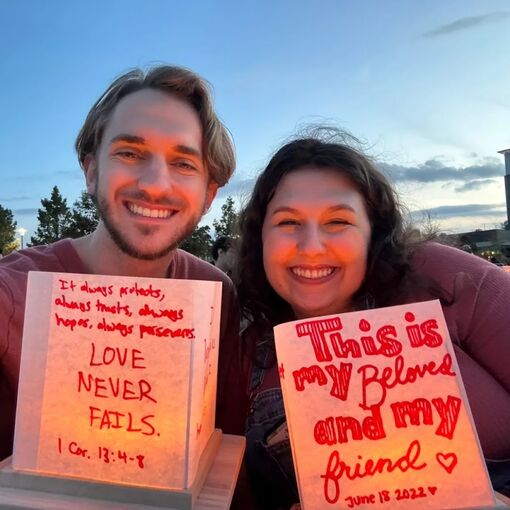 It always protects,
always trusts, always
hopes, always perseveres.
LOVE
NEVER
FAILS.
1 Cor. 13:4-8
This is
my Beloved
and my
friend ♡
June 18 2022 ♥